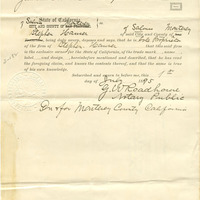 State of California
CITY AND COUNTY OF SAN FRANCISCO
of Salinas Monterey
said City and County of
Stephen
being duly sworn, deposes and says that he is sole proprietor
of the firm of Stephen
that this said firm
is the exclusive owner, for the State of California, of the trade mark
label and design, hereinbefore mentioned and described, that he has read
the foregoing claim, and knows the contents thereof, and that the same is
true of his own knowledge.
Subscribed and sworn to before me, this 1st
1895
G W Roadhouse
Notary Public
In & for Monterey County California